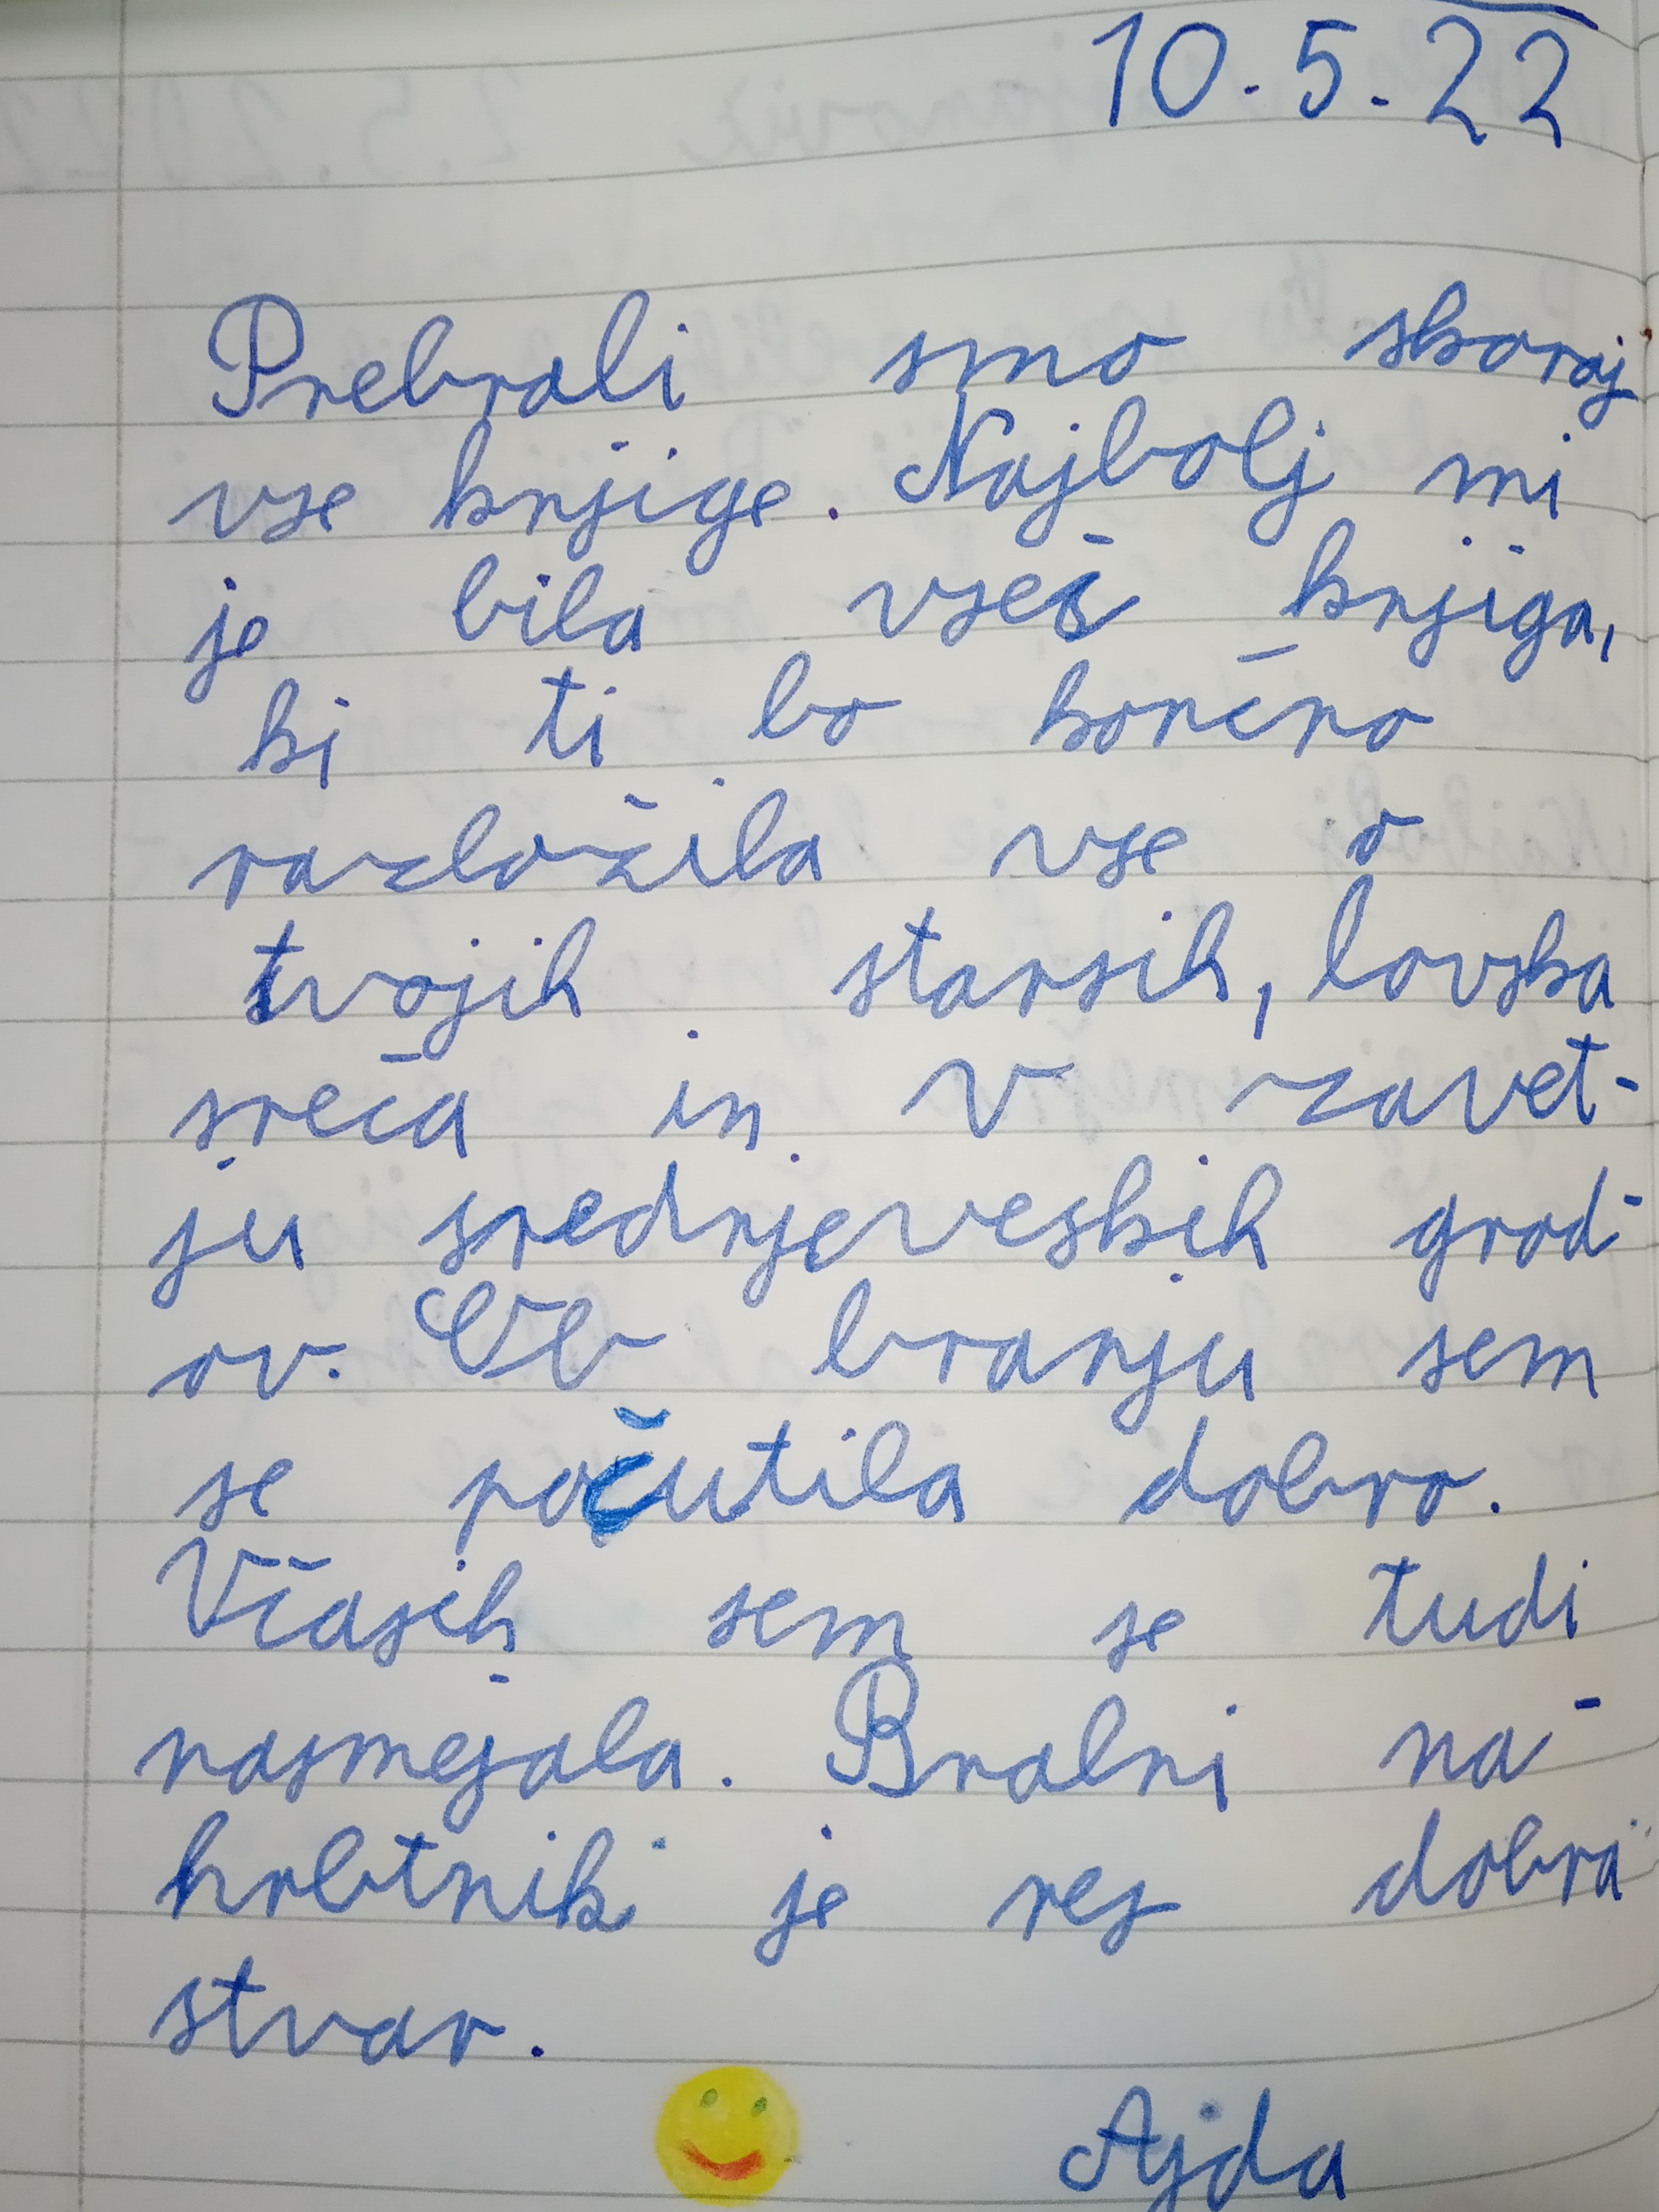 10.5.22
Prebrali smo skoraj
vse knjige. Najbolj mi
je bila všeč knjiga,
ki ti bo končno
razložila vse o
tvojih starsih, lovska
sreča in V zavet-
ju srednjeveskih grad-
ov. Ob branju sem
se počutila dobro.
Včasih sem se tudi
nasmejala. Bralni na-
hrbtnik je res dobra
stvar.
Ajda